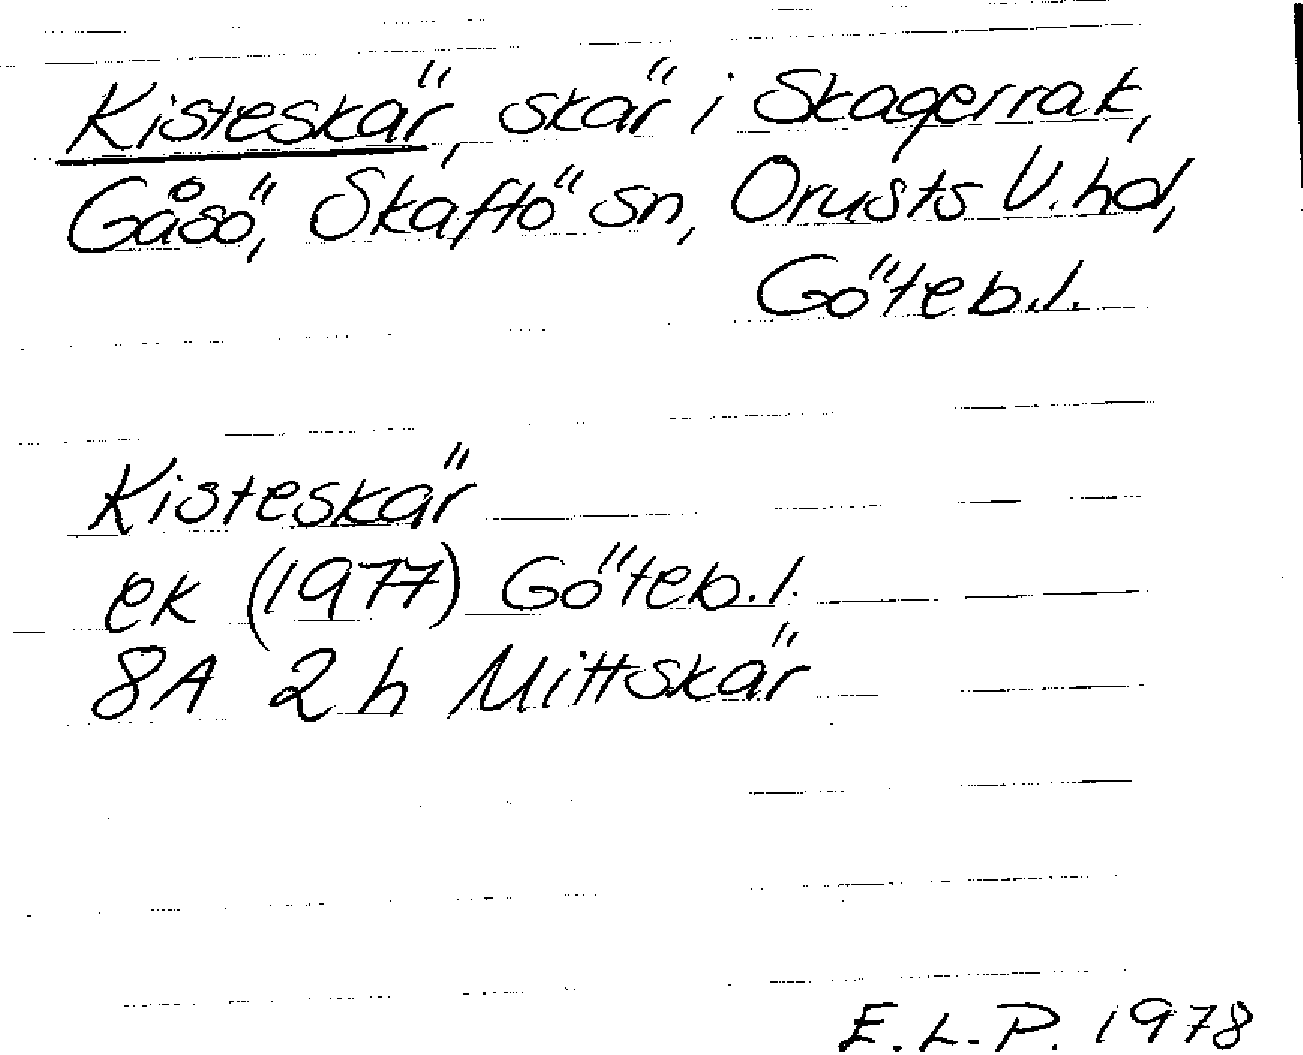 Kisteskär, skär i Skagerrak,
Gåsö, Skaftö sn, Orusts V. hd,
Göteb.l.
Kisteskär
ek (1977) Göteb.l.
8A 2h Mittskär
E.L.P. 1978